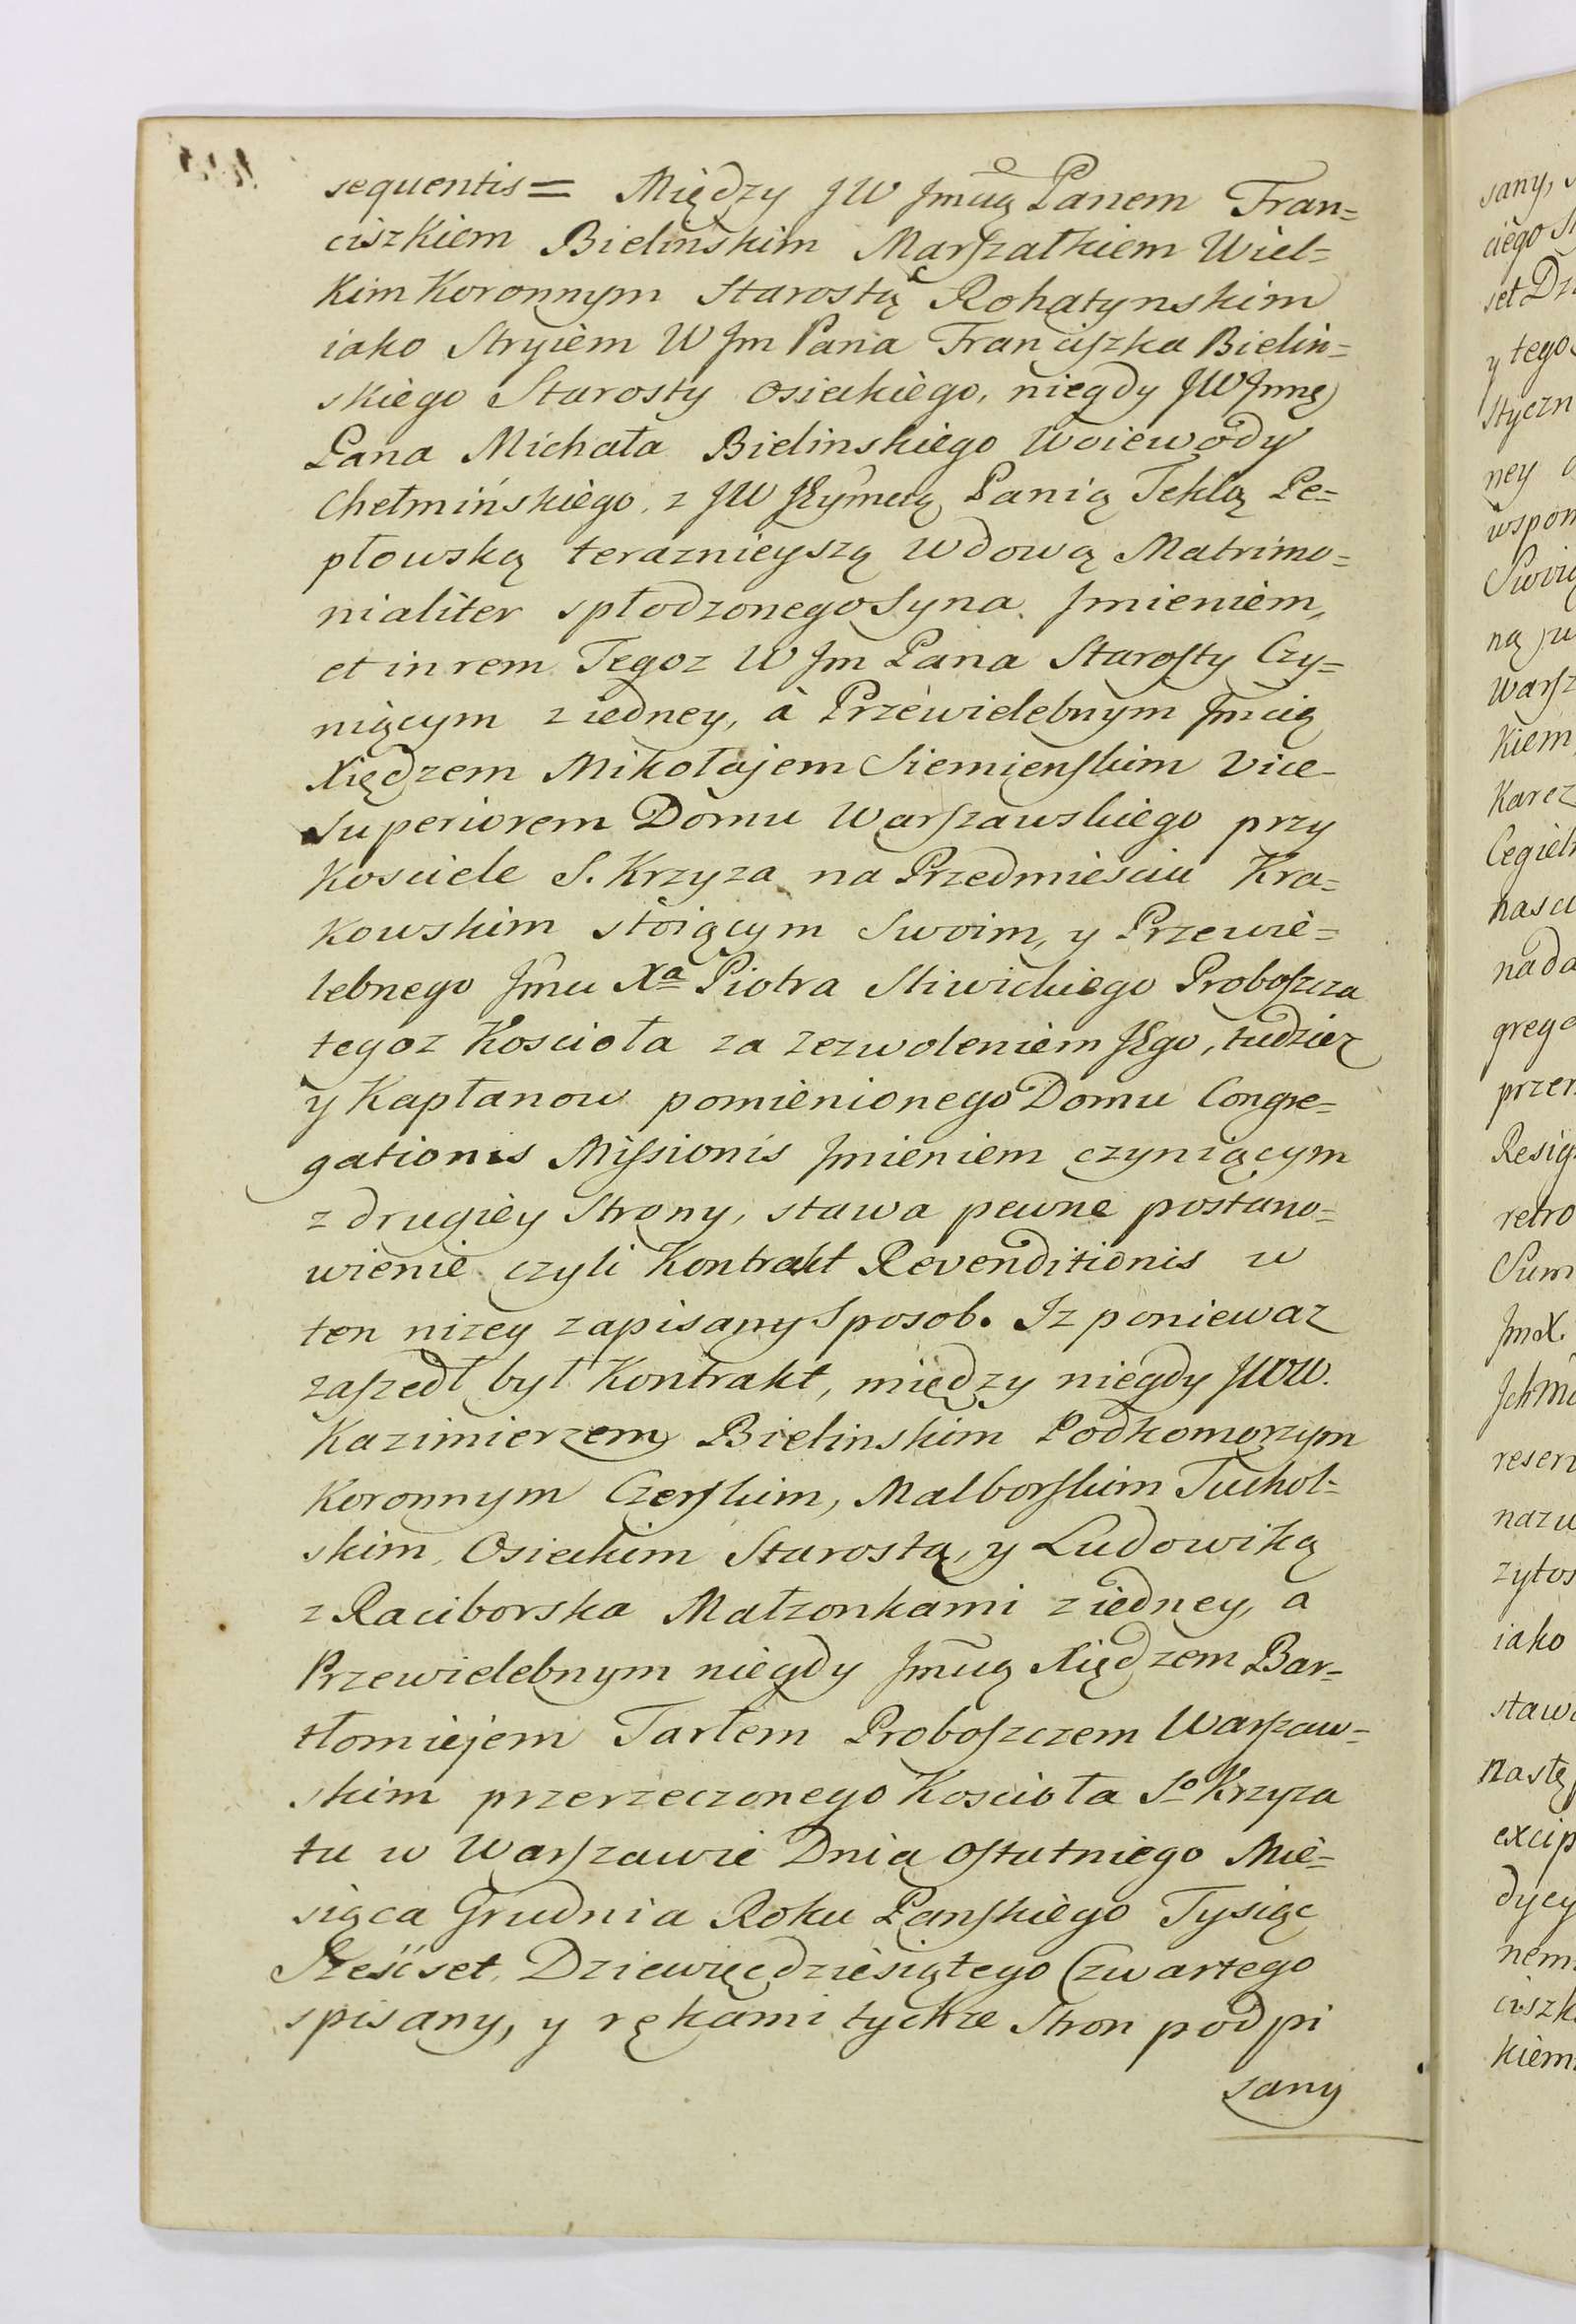 sequentis = Między JW Jmcią Panem Fran=
ciszkiem Bielinskim Marszałkiem Wiel=
kim Koronnym Starostą Rohatynskim
iako Stryiem W Jm Pana Franciszka Bielin=
skiego Starosty Osieckiego, niegdy JW Jmę
Pana Michała Bielinskiego Woiewody
Chełmińskiego, z JW JEymcią Panią Teklą Pe=
płowską teraznieyszą Wdową Matrimo=
nialiter spłodzonego Syna Jmieniem,
et in rem Tegoz W Jm Pana Starosty Czy=
niącym z iedney, à Przewielebnym Jmcią
Xiędzem Mikołajem Siemienskim Vice-
Superiorem Domu Warszawskiego przy
Kosciele S. Krzyza na Przedmiesciu Kra=
kowskim stoiącym Swoim, y Przewie=
lebnego Jmci Xa Piotra Sliwickiego Proboszcza
tegoz Koscioła za zezwoleniem JEgo, tudziez
y Kapłanow pomienionego Domu Congre=
gationis Missionis Jmieniem czyniącym
z drugiey Strony, stawa pewne postano=
wienie czyli Kontrakt Revenditionis w
ten nizey zapisany Sposob. Iz poniewaz
zaszedł był Kontrakt, między niegdy JWW.
Kazimierzem Bielinskim Podkomorzym
Koronnym Czerskim, Malborskim Tuchol=
skim, Osieckim Starostą, y Ludowiką
z Raciborska Małzonkami z iedney, a
Przewielebnym niegdy Jmcią Xiędzem Bar=
tłomiejem Tarłem Proboszczem Warszaw=
skim przerzeczonego Koscioła So Krzyza
tu w Warszawie Dnia ostatniego Mie=
siąca Grudnia Roku Panskiego Tysiąc
Sześćset Dziewięcdziesiątego Czwartego
spisany, y rękami tychze Stron podpi
sany
sany,
ciego
set
y tego
Styczn
ney
wspom
ną
Warsz
kiem
Karcz
Cegiel
nada
grego
przer
Resig
retro
Sum
JmX.
reser
nazw
zytos
iako
stawa
nastę
excip
dycy
nem
ciszk
kiem